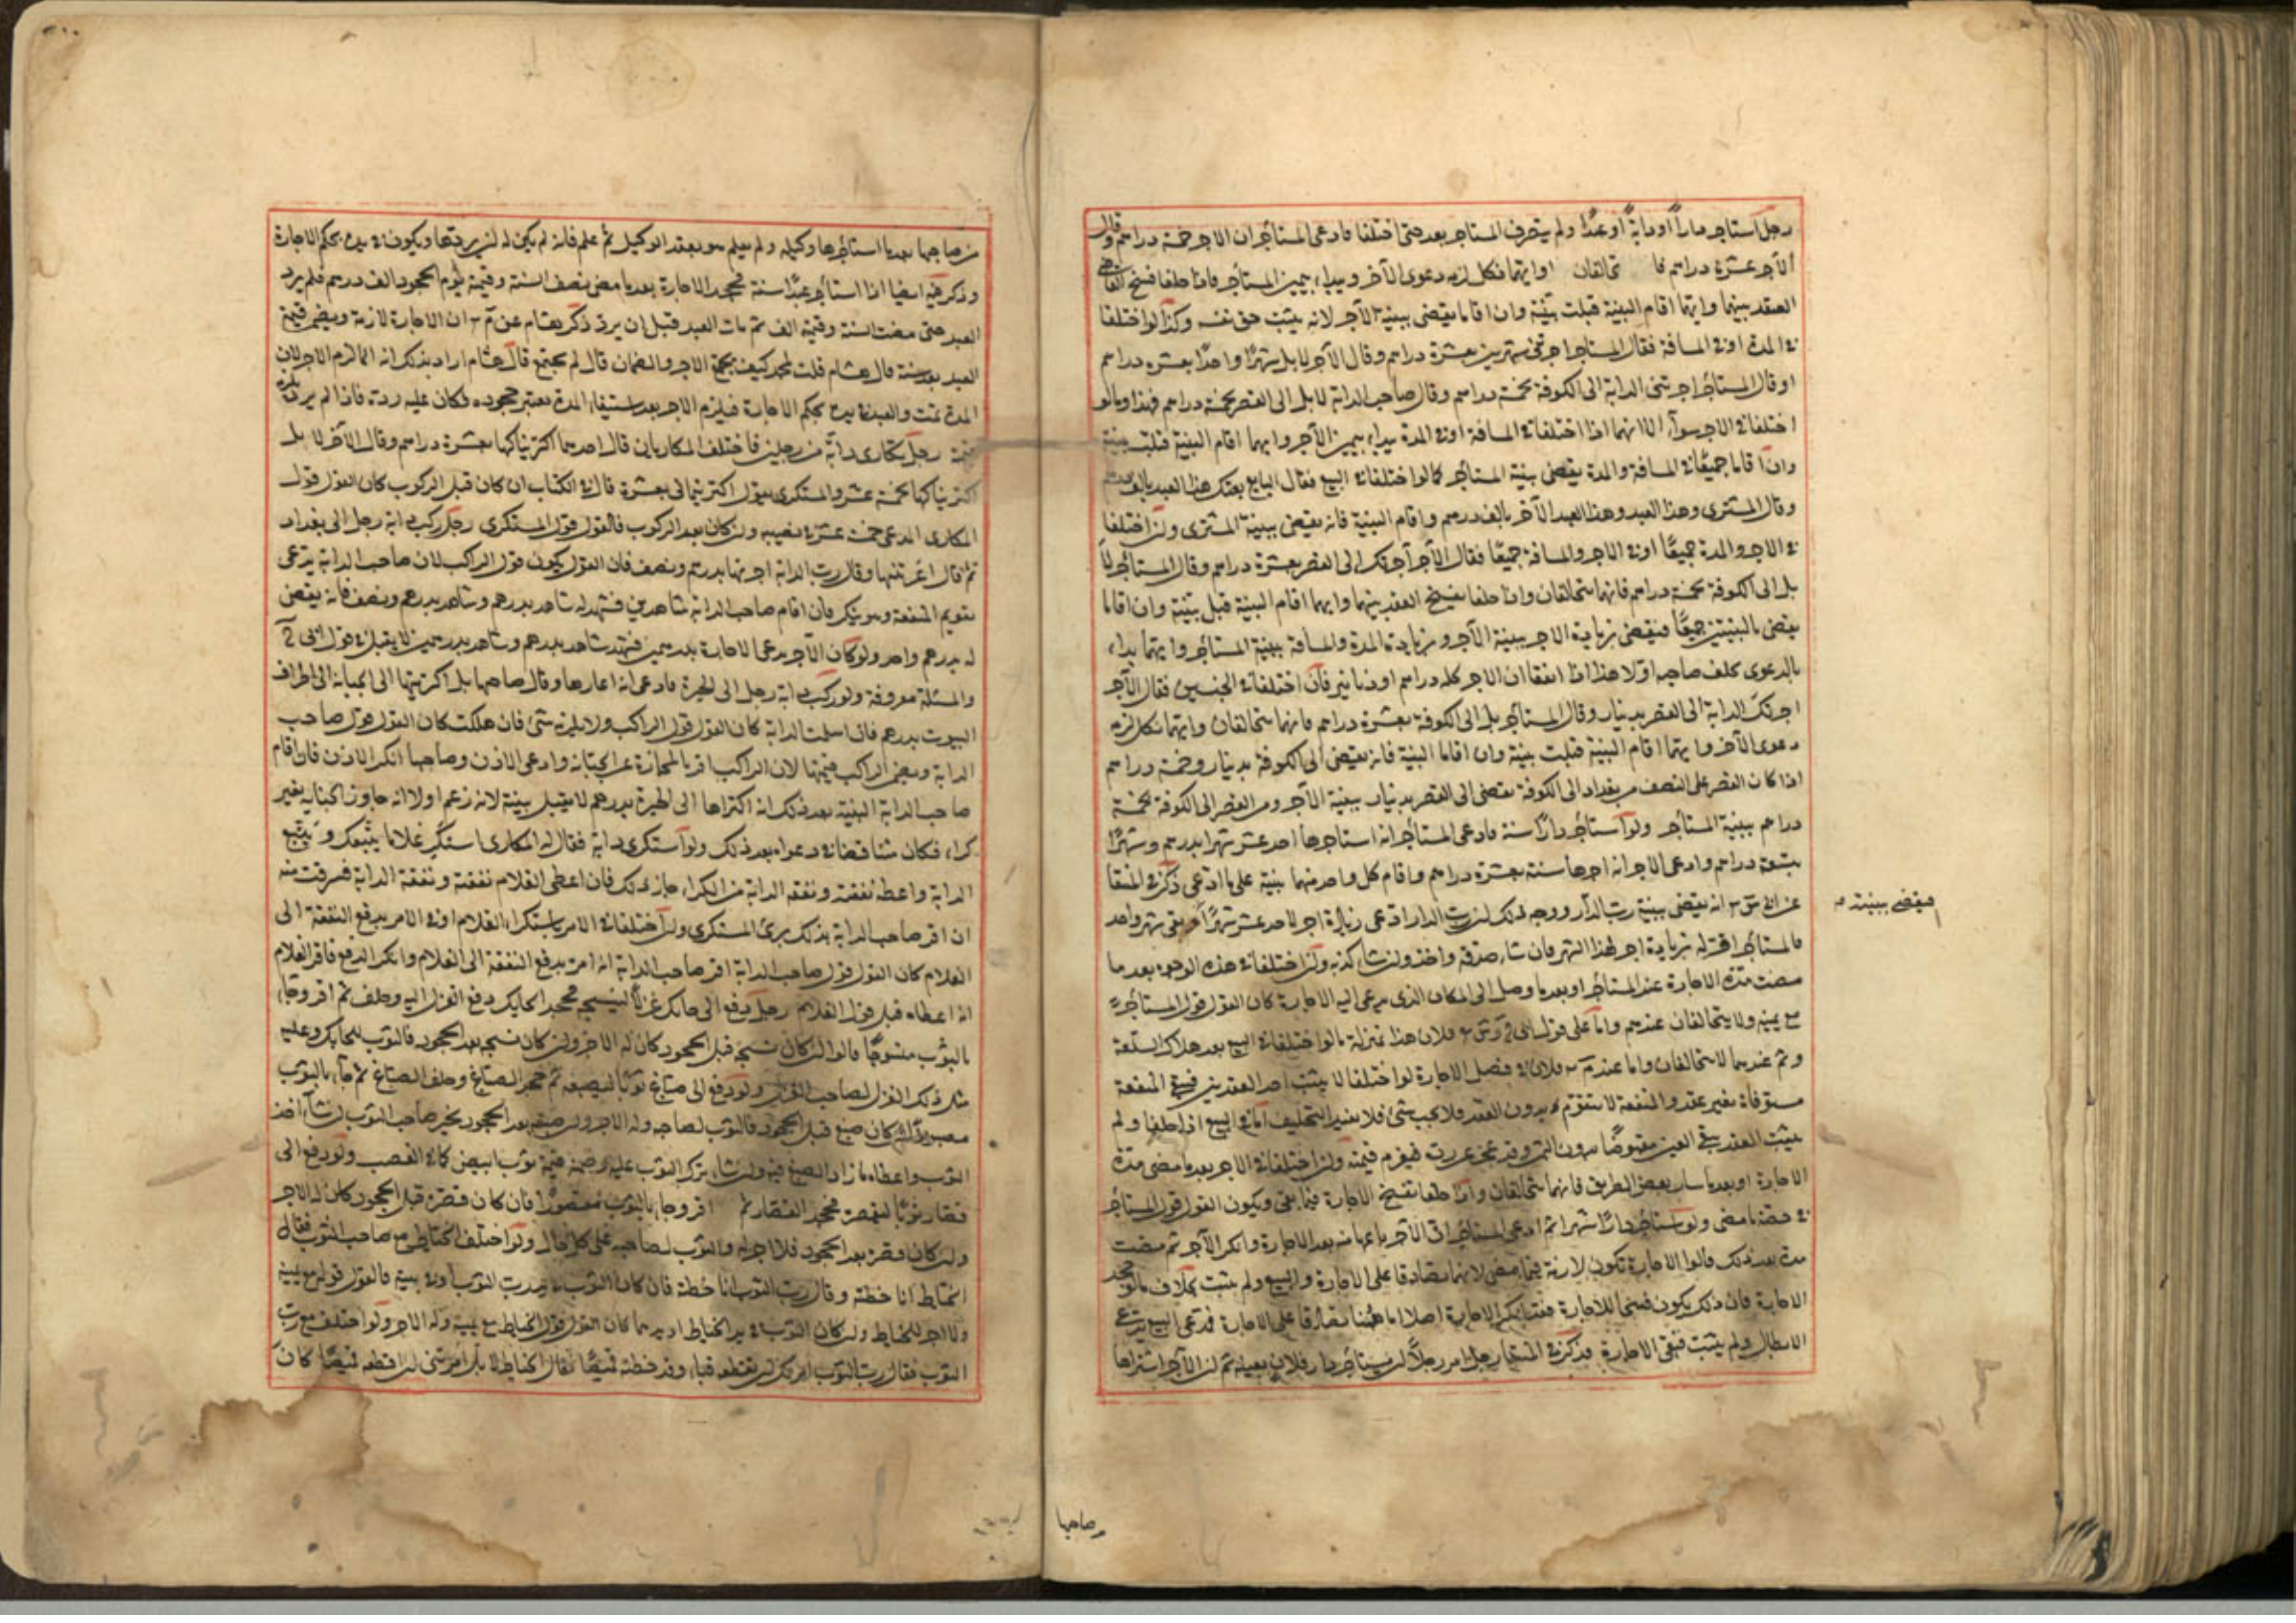 رجل استاجر دارا او دابة او عبدا ولم يتصرف المستاجر بعد حتى اختلفا فادعى المستأجر ان الاجر خمسة دراهم وقال
الآجر عشرة دراهم فا تحالفان وايهما نكل لزمه دعوى الآخر ويبداء بيمين المستأجر فاذا حلفا فسخ القاضي
العقد بينهما وايهما اقام البينة قبلت بينته وان اقاما يقضى ببينة الآجر لانه يثبت حق نفسه وكذا لو اختلفا
في المدة او في المسافة فقال المستاجر اجرتني شهرين بعشرة دراهم وقال الآجر لا بل شهرا واحدا بعشرة دراهم
او قال المستأجر اجرتني الدابة الى الكوفة بخمسة دراهم وقال صاحب الدابة لا بل الى القصر بخمسة دراهم فهذا وما لو
اختلفا في الاجر سوآء الا انهما اذا اختلفا في المسافة او في المدة يبداء بيمين الآجر وايهما اقام البينة قبلت بينته
وان اقاما جميعا في المسافة والمدة يقضى ببينة المستأجر كما لو اختلفا في البيع فقال البايع بعتك هذا العبد بالف درهم
وقال المشترى وهذا العبد وهذا العبد الآخر بالف درهم واقام البينة فانه يقضى ببينة المشترى وان اختلفا
في الاجر والمدة جميعا او في الاجر والمسافة جميعا فقال الآجر آجرتك الى القصر بعشرة دراهم وقال المستأجر لا
بل الى الكوفة بخمسة دراهم فانهما يتحالفان واذا حلفا يفسخ العقد بينهما وايهما اقام البينة قبل بينته وان اقاما
يقضى بالبينتين جميعا فيقضى بزيادة الاجر ببينة الآجر وبزيادة المدة والمسافة ببينة المستأجر وايهما بداء
بالدعوى يحلف صاحبه اولا هذا اذا اتفقا ان الاجر كله دراهم او دنانير فان اختلفا في الجنس فقال الآجر
اجرتك الدابة الى القصر بدينار وقال المستأجر بل الى الكوفة بعشرة دراهم فانهما يتحالفان وايهما نكل لزمه
دعوى الآخر وايهما اقام البينة قبلت بينته وان اقاما البينة فانه يقضى الى الكوفة بدينار وخمسة دراهم
اذا كان القصر على النصف من بغداد الى الكوفة يقضى الى القصر بدينار ببينة الآجر ومن القصر الى الكوفة بخمسة
دراهم ببينة المستأجر ولو استأجر دارا سنة فادعى المستأجر انه استاجرها احد عشر شهرا بدرهم وشهرا
بتسعة دراهم وادعى الاجر انه اجرها سنة بعشرة دراهم واقام كل واحد منهما بينة على ما ادعى ذكر في المنتقى
عن انه يقضى ببينة رب الدار ووجه ذلك ان رب الدار ادعى زيادة اجر لاحد عشر شهرا بقى شهر واحد
فيقضى ببينته
فالمستأجر اقر له بزيادة اجر لهذا الشهر فان شاء صدقه واخذ وان شاء كذبه وان اختلفا في هذه الوجوه بعد ما
مضت مدة الاجارة عند المستأجر او بعد ما وصل الى المكان الذى يدعى اليه الاجارة كان القول قول المستأجر
مع يمينه ولا يتحالفان عندهم واما على قول فلان هذا بمنزلة ما لو اختلفا في البيع بعد هلاك السلعة
وثم عندهما لا يتحالفان واما عند فلان في فصل الاجارة لو اختلفا لا يثبت احد العقدين فبقي المنفعة
مستوفاة بغير عقد والمنفعة لا تتقوم بدون العقد فلا يجب شئ فلا يفيد التحليف اما في البيع اذا حلفا ولم
يثبت العقد بقي العين مقبوضا بدون الثمن وقد عجز عن رده فيغرم قيمته وان اختلفا في الاجر بعد ما مضى مدة
الاجارة او بعد ما سار بعض الطريق فانهما يتحالفان واذا حلفا تفسخ الاجارة فيما بقى ويكون القول قول المستأجر
في حصة ما مضى ولو استأجر دارا شهرا ثم ادعى المستأجر ان الآجر باعها منه بعد الاجارة وانكر الآجر ثم مضت
مدة بعد ذلك قالوا الاجارة تكون لازمة فيما مضى لانهما تصادقا على الاجارة والبيع ولم يثبت بخلاف ما لو جحد
الاجارة فان ذلك يكون فسخا للاجارة فقد انكر الاجارة اصلا اما ههنا تصادقا على الاجارة فدعى البيع يدعى
الابطال ولم يثبت فتبقى الاجارة وذكر في المنتقى رجل امر رجلا ان يستأجر دار فلان بعينها ثم ان الآجر اشتراها
من صاحبها
من صاحبها بعد ما استأجرها وكيله ولم يعلم هو بعقد الوكيل ثم علم فانه لم يكن له ان يردها ويكون في يده بحكم الاجارة
وذكر فيه ايضا اذا استأجر عبدا سنة فجحد الاجارة بعد ما مضى نصف السنة وقيمته يوم الجحود الف درهم فلم يرد
العبد حتى مضت السنة وقيمته الف ثم مات العبد قبل ان يرد ذكر هشام عن ان الاجارة لازمة ويضمن قيمة
العبد بعد سنة قال هشام قلت لمحمد كيف يجتمع الاجر والضمان قال لم يجتمع قال هشام اراد بذلك انه انما لزم الاجر لان
المدة تمت والعبد في يده بحكم الاجارة فيلزم الاجر بعد استيفاء المدة يعتبر جحوده فكان عليه رده فاذا لم يرد
قيمته رجل تكارى دابة من رجلين فاختلف المكاريان قال احدهما اكتريناكها بعشرة دراهم وقال الآخر لا بل
اكتريناكها بخمسة عشر والمستكرى يقول اكتريتماني بعشرة قال في الكتاب ان كان قبل الركوب كان القول قول
المكارى المدعى خمسة عشر في نصيبه وان كان بعد الركوب فالقول قول المستكرى رجل ركب دابة رجل الى بغداد
ثم قال اعرتنيها وقال رب الدابة اجرتها بدرهم ونصف فان القول يكون قول الراكب لان صاحب الدابة يدعى
تقويم المنفعة وهو ينكر فان اقام صاحب الدابة شاهدين فشهد له شاهد بدرهم وشاهد بدرهم ونصف فانه يقضى
له بدرهم واحد ولو كان الآجر يدعى الاجارة بدرهمين فشهد شاهد بدرهم وشاهد بدرهمين لا يقبل في قول ابى
والمسئلة معروفة ولو ركب دابة رجل الى الحيرة فادعى انه اعارها وقال صاحبها بل اكريتها الى الجبانة الى اطراف
البيوت بدرهم فان سلمت الدابة كان القول قول الراكب ولا يلزمه شئ فان هلكت كان القول قول صاحب
الدابة ويضمن الراكب قيمتها لان الراكب اقر بالمجاوزة عن الجبانة وادعى الاذن وصاحبها انكر الاذن فان اقام
صاحب الدابة البينة بعد ذلك انه اكتراها الى الحيرة بدرهم لا يقبل بينته لانه زعم اولا انه جاوز الجبانة بغير
كراء فكان متناقضا في دعواه بعد ذلك ولو استكرى دابة فقال له المكارى استكر غلاما يتبعك ويتبع
الدابة واعطه نفقته ونفقة الدابة من الكراء جاز ذلك فان اعطى الغلام نفقته ونفقة الدابة فسرقت منه
ان اقر صاحب الدابة بذلك برئ المستكرى وان اختلفا في الامر باستكراء الغلام او في الامر بدفع النفقة الى
الغلام كان القول قول صاحب الدابة اقر صاحب الدابة انه امره بدفع النفقة الى الغلام وانكر الدفع فاقر الغلام
انه اعطاه قبل قول الغلام رجل دفع الى حايك غزلا لينسجه فجحد الحايك دفع الغزل اليه وحلف ثم اقر وجاء
بالثوب منسوجا قالوا ان كان نسجه قبل الجحود كان له الاجر وان كان نسجه بعد الجحود فالثوب للحايك وعليه
مثل ذلك الغزل لصاحب الغزل ولو دفع الى صباغ ثوبا ليصبغه ثم جحد الصباغ وحلف الصباغ ثم جاء بالثوب
مصبوغا ان كان صبغ قبل الجحود فالثوب لصاحبه وله الاجر وان صبغه بعد الجحود يخير صاحب الثوب ان شاء اخذ
الثوب واعطاه ما زاد الصبغ فيه وان شاء ترك الثوب عليه وضمنه قيمة ثوب ابيض كما في الغصب ولو دفع الى
قصار ثوبا ليقصره فجحد القصار ثم اقر وجاء بالثوب مقصورا فان كان قصره قبل الجحود كان له الاجر
وان كان قصره بعد الجحود فلا اجر له والثوب لصاحبه على كل حال ولو اختلف الخياط مع صاحب الثوب فقال
الخياط انا خطته وقال رب الثوب انا خطته فان كان الثوب في يد رب الثوب او في بيته فالقول قوله مع يمينه
ولا اجر للخياط وان كان الثوب في يد الخياط او يدهما كان القول قول الخياط مع يمينه وله الاجر ولو اختلف مع رب
الثوب فقال رب الثوب امرتك ان تقطعه قباء وقد خطته قميصا فقال الخياط لا بل امرتنى ان اقطعه قميصا كان